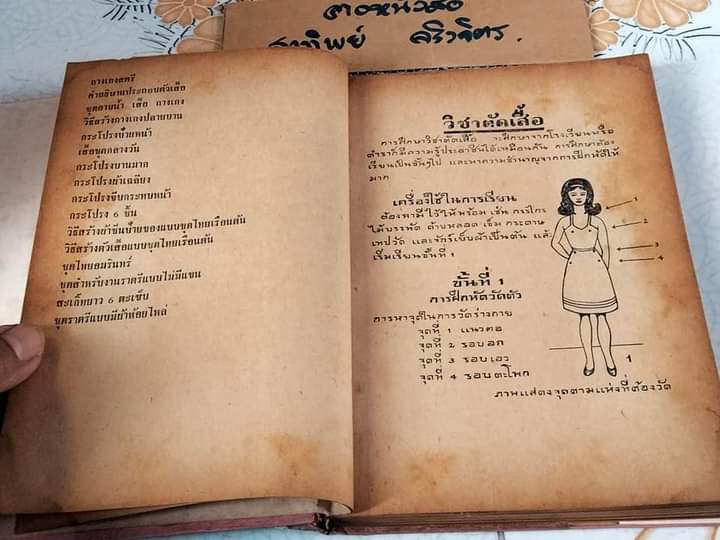 ทิพย์ ศริวจิตร.
กางเกงสตรี
คำอธิบายประกอบตัวเสื้อ
ชุดอาบน้ำ เสื้อ กางเกง
วิธีสร้างกางเกงปลายบาน
กระโปรงป้ายหน้า
เสื้อชุดกลางวัน
กระโปรงบานมาก
กระโปรงผ้าเฉลียง
กระโปรงจีบกระทบหน้า
กระโปรง 6 ชิ้น
วิธีสร้างผ้าซิ่นป้ายของแบบชุดไทยเรือนต้น
วิธีสร้างตัวเสื้อแบบชุดไทยเรือนต้น
ชุดไทยอมรินทร์
ชุดสำหรับงานราตรีแบบไม่มีแขน
สะเก็ทยาว 6 ตะเข็บ
ชุดราตรีแบบมีผ้าห้อยไหล่
วิชาตัดเสื้อ
การศึกษาวิชาตัดเสื้อ จะศึกษาจากโรงเรียนหรือ
ตำราก็มีความรู้ประอาชีพได้เหมือนกัน การศึกษาต้อง
เรียนเป็นขั้นๆไป และหาความชำนาญจากการฝึกหัดให้
มาก
เครื่องใช้ในการเรียน
ต้องหามีไว้ให้พร้อม เช่น กรรไกร
ไม้บรรทัด ด้ายหลอด เข็ม กระดาษ
เทปวัด และจักร์เย็บผ้าเป็นต้น แล้ว
เริ่มเรียนขั้นที่ 1
ขั้นที่ 1
การฝึกหัดวัดตัว
การหาจุดในการวัดร่างกาย
จุดที่ 1 แนวคอ
จุดที่ 2 รอบอก
จุดที่ 3 รอบเอว
จุดที่ 4 รอบตะโพก
1
2
3
4
1
ภาพแสดงจุดตามแห่งที่ต้องวัด